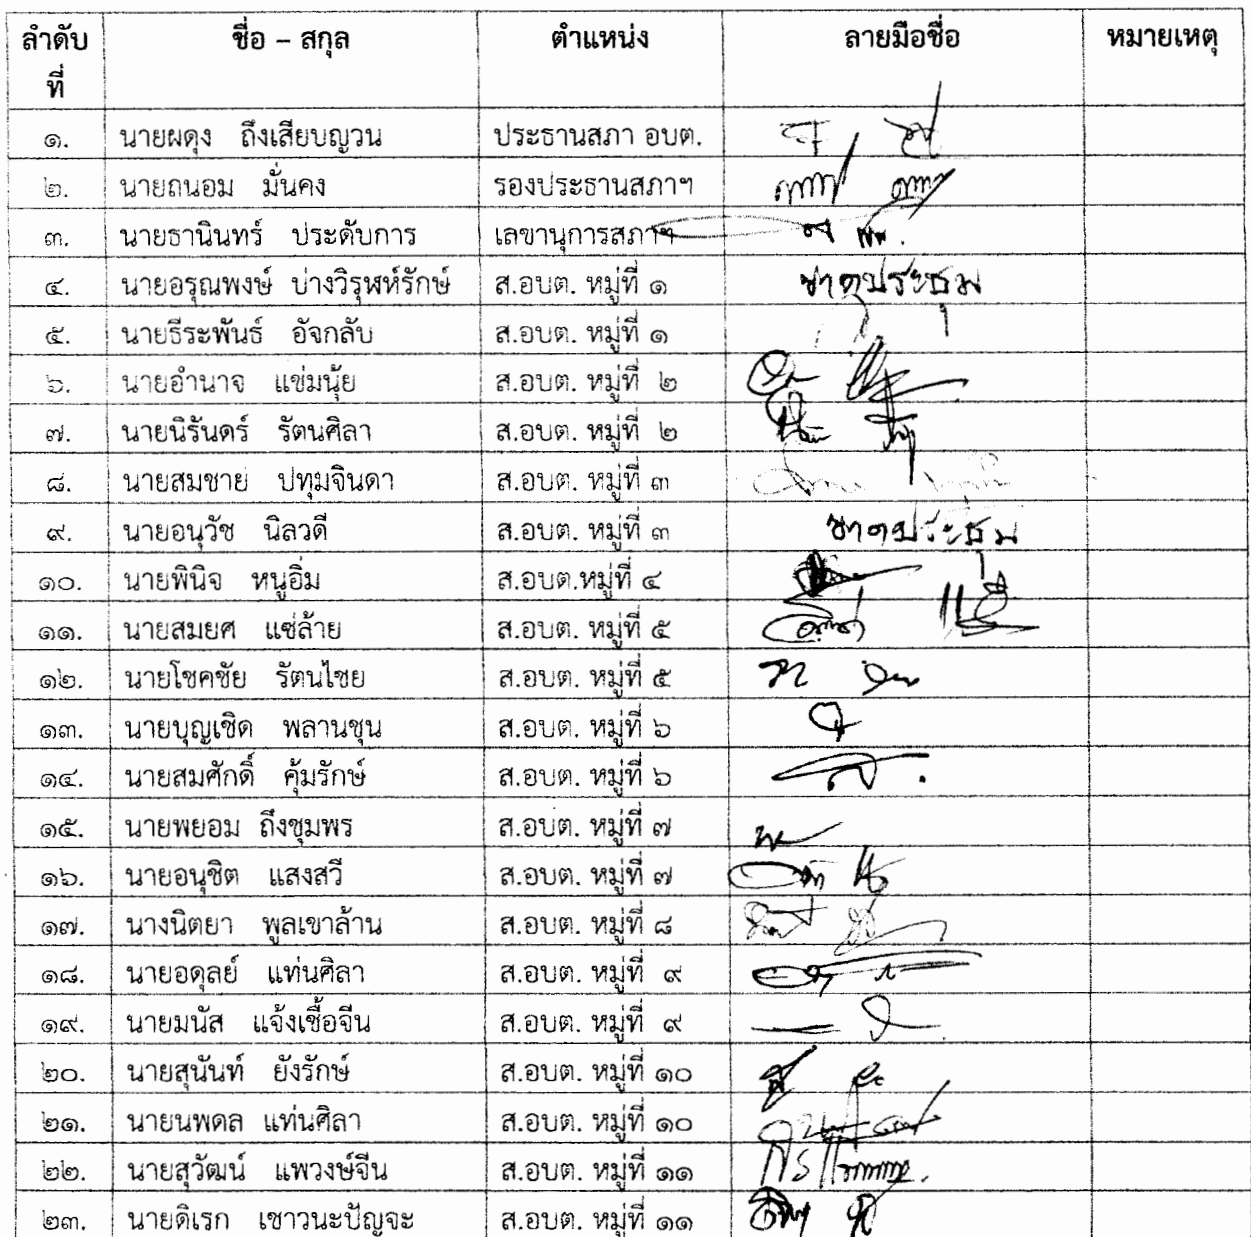 ลำดับที่ ชื่อ – สกุล ตำแหน่ง ลายมือชื่อ หมายเหตุ
๑. นายผดุง ถึงเสียบญวน ประธานสภา อบต.
๒. นายถนอม มั่นคง รองประธานสภาฯ
๓. นายธานินทร์ ประดับการ เลขานุการสภาฯ
๔. นายอรุณพงษ์ บ่างวิรุฬห์รักษ์ ส.อบต. หมู่ที่ ๑ ขาดประชุม
๕. นายธีระพันธ์ อัจกลับ ส.อบต. หมู่ที่ ๑
๖. นายอำนาจ แช่มนุ้ย ส.อบต. หมู่ที่ ๒
๗. นายนิรันดร์ รัตนศิลา ส.อบต. หมู่ที่ ๒
๘. นายสมชาย ปทุมจินดา ส.อบต. หมู่ที่ ๓
๙. นายอนุวัช นิลวดี ส.อบต. หมู่ที่ ๓ ขาดประชุม
๑๐. นายพินิจ หนูอิ่ม ส.อบต.หมู่ที่ ๔
๑๑. นายสมยศ แซ่ล้าย ส.อบต. หมู่ที่ ๕
๑๒. นายโชคชัย รัตนไชย ส.อบต. หมู่ที่ ๕
๑๓. นายบุญเชิด พลานชุน ส.อบต. หมู่ที่ ๖
๑๔. นายสมศักดิ์ คุ้มรักษ์ ส.อบต. หมู่ที่ ๖
๑๕. นายพยอม ถึงชุมพร ส.อบต. หมู่ที่ ๗
๑๖. นายอนุชิต แสงสวี ส.อบต. หมู่ที่ ๗
๑๗. นางนิตยา พูลเขาล้าน ส.อบต. หมู่ที่ ๘
๑๘. นายอดุลย์ แท่นศิลา ส.อบต. หมู่ที่ ๙
๑๙. นายมนัส แจ้งเชื้อจีน ส.อบต. หมู่ที่ ๙
๒๐. นายสุนันท์ ยังรักษ์ ส.อบต. หมู่ที่ ๑๐
๒๑. นายนพดล แท่นศิลา ส.อบต. หมู่ที่ ๑๐
๒๒. นายสุวัฒน์ แพวงษ์จีน ส.อบต. หมู่ที่ ๑๑
๒๓. นายดิเรก เชาวนะปัญจะ ส.อบต. หมู่ที่ ๑๑